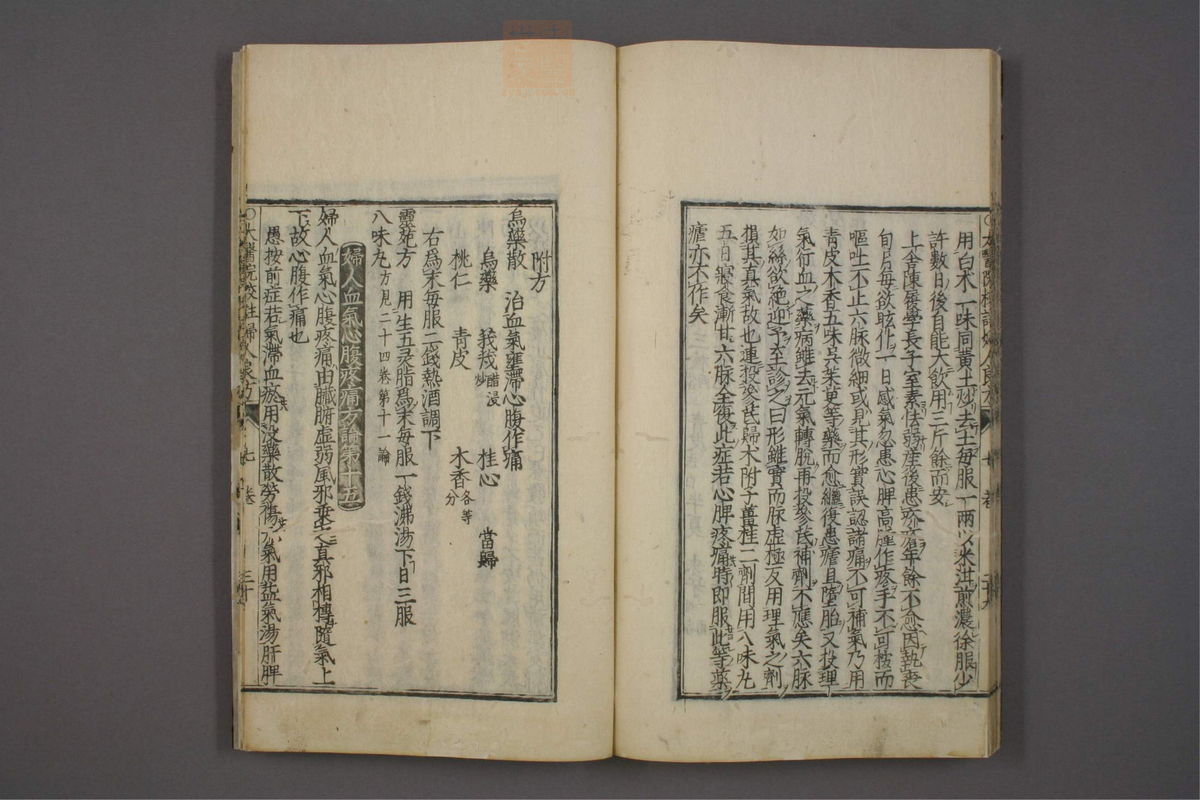 用白术一味同黄土炒去土每服一兩以米泔煎濃徐服少
許數日後自能大飲用三斤餘而安
上舍陳履學長子室素怯弱產後患疥瘡年餘不愈因執喪
旬月每欲眩仆一日感氣忽患心脾高腫作疼手不可按而
嘔吐不止六脉微細或見其形實誤認諸痛不可補氣乃用
青皮木香五味呉茱萸等藥而愈繼復患瘧且墮胎又投理
氣行血之藥病雖去元氣轉脫再投參芪補劑不應矣六脉
如絲欲絶迎予至診之曰形雖實而脉虛極反用理氣之劑
損其真氣故也連投參芪歸术附子薑桂二劑間用八味丸
五日寢食漸甘六脉全復此症若心脾疼痛時即服此等藥
瘧亦不作矣
附方
烏藥散 治血氣壅滯心腹作痛
烏藥 莪茂醋浸炒 桂心 當歸
桃仁 青皮 木香各等分
右為末每服二錢熱酒調下
靈苑方 用生五灵脂爲末每服一錢沸湯下日三服
八味丸方見二十四卷第十一論
婦人血氣心腹疼痛方論第十五
婦人血氣心腹疼痛由臟腑虛弱風邪乗之真邪相搏隨氣上
下故心腹作痛也
愚按前症若氣滯血瘀用没藥散勞傷元氣用益氣湯肝脾
〇太醫院校註婦人良方 七卷 三十